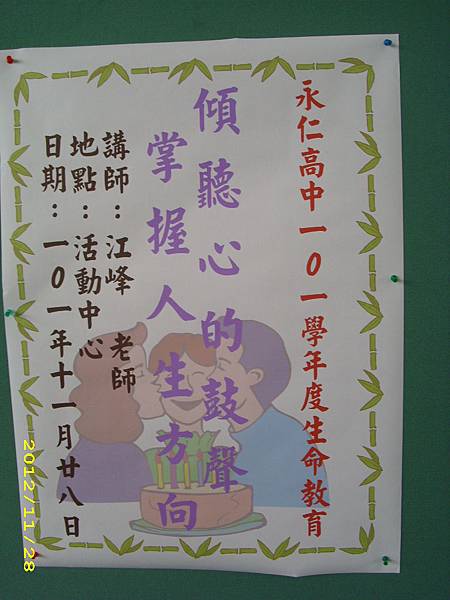 永仁高中一０一學年度生命教育
傾聽心的鼓聲
掌握人生方向
講師：江峰 老師
地點：活動中心
日期：一０一年十一月廿八日
2012/11/28